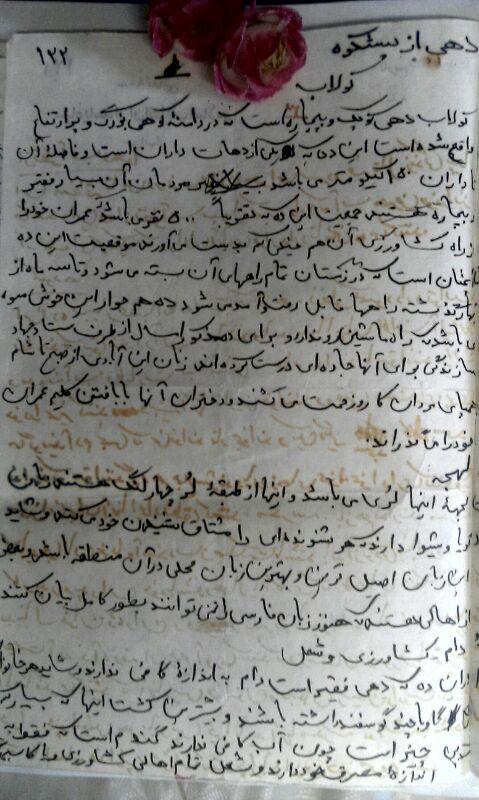 دهی از پشتکوه
۱۲۲
کولاب
کولاب دهی کوچک و بیچاره است که در دامنه کوهی بزرگ و پر ارتفاع
واقع شده است این دی که یکی از دهات داران است و فاصله آن
تا داران ۵۰ کیلومتر می باشد مردمان آن بسیار فقیر
و بیچاره هستند جمعیت این ده که تقریباً ۵۰۰ نفر می باشد عمران خود را
از راه کشاورزی آن هم خیلی کم بدست می آورند موقعیت این ده
است که در زمستان تمام راههای آن بسته می شود و تا سه ماه از
بهار گذشته راهها قابل رفت و آمد می شود ده هم جوار این خوش مو،
می باشد که راه ماشین رو ندارد و برای ده مذکور امسال از طرف ستاد جهاد
سازندگی برای آنها جاده ای درست کرده اند زنان این آبادی از صبح تا شام
همپای مردان کار و زحمت می کشند و دختران آنها با بافتن گلیم عمران
خود را می گذرانند.
لهجه:
لهجهٔ اینها لری می باشد و اینها از طبقهٔ لر چهار لنگ هستند زبان
گویا و شیوا دارند که هر شنونده ای را مشتاق شنیدن خود می کنند و شاید
این زبان اصیل ترین و بهترین زبان محلی در آن منطقه باشد و بعضی
از اهالی هستند که هنوز زبان فارسی را نمی توانند بطور کامل بیان کنند
دام - کشاورزی و شغل
در این ده که دهی فقیر است دام به اندازهٔ کافی ندارند و شاید هر خانوار
گاو یا چند گوسفند داشته باشند و بیشترین کشت اینها که بسیار
چیز است چون آب کافی ندارند گندم است که فقط به
اندازهٔ مصرف خود دارند و شغل تمام اهالی کشاورزی